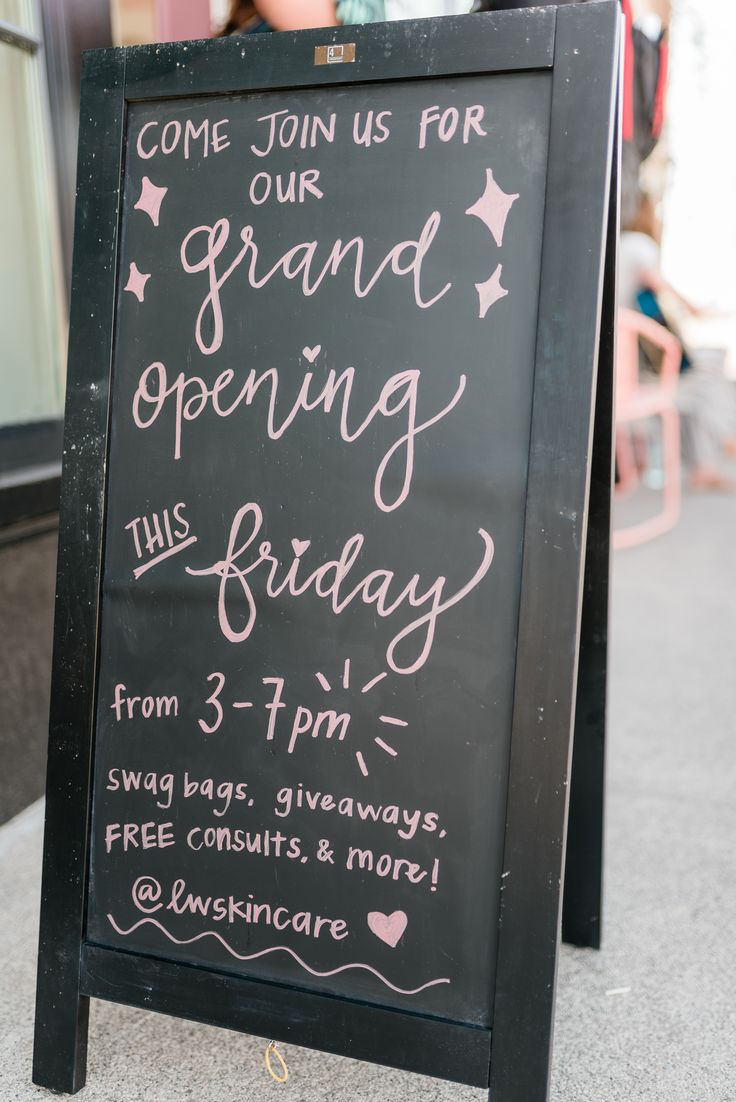 COME JOIN US FOR
OUR
grand
opening
THIS friday
from 3-7pm
swag bags, giveaways,
FREE consults, & more!
@lwskincare